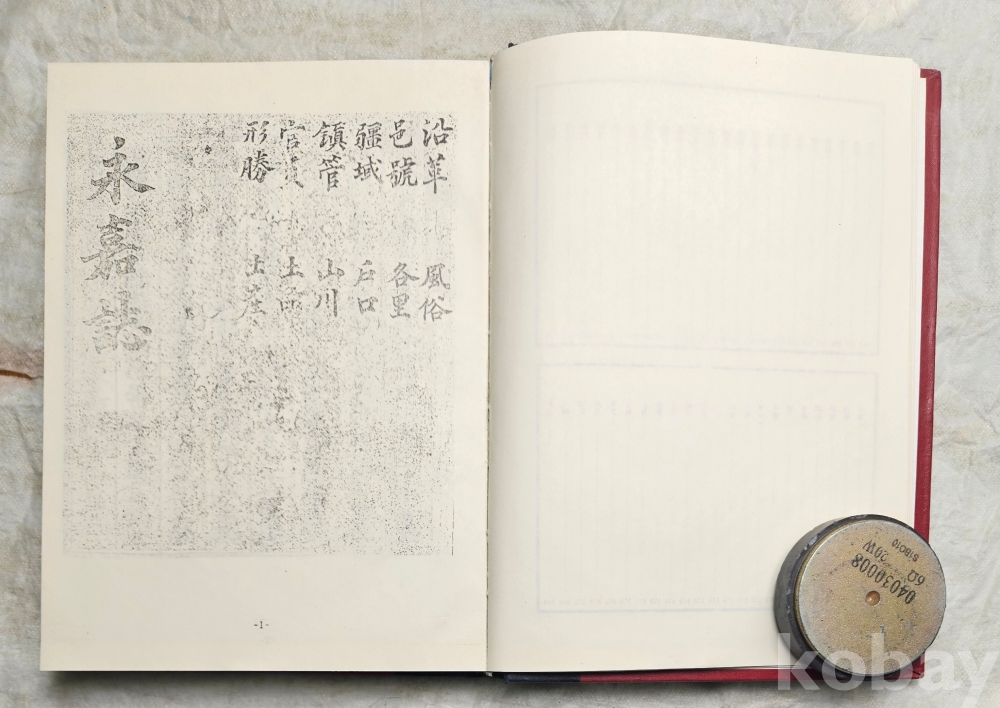 沿革 風俗
邑號 各里
疆域 戶口
鎭管 山川
官員 土品
形勝 土産
永嘉誌
-1-
04030008
6Ω
20W
kobay